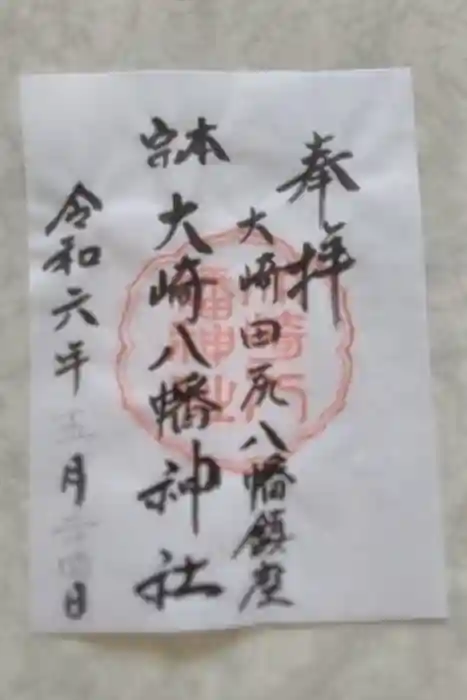 奉拝
大崎田尻八幡鎮座
本宗
大崎八幡神社
令和六年五月二十四日